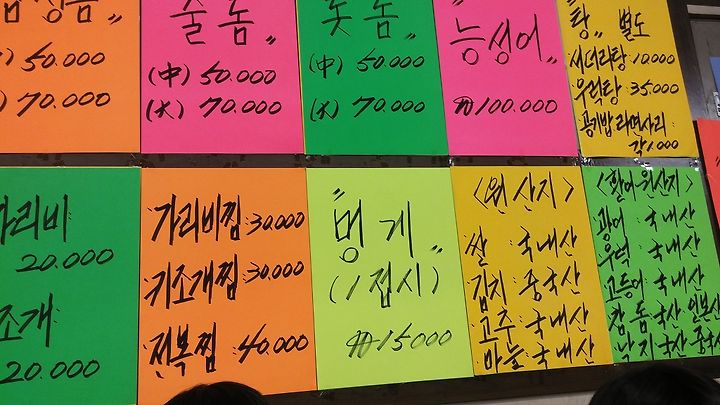 50.000
70.000
줄돔"
(中) 50.000
(大) 70.000
돗돔"
(中) 50.000
(大) 70.000
능성어"
₩100.000
탕" 별도
서더리탕 10,000
우럭탕 35.000
공기밥 라면사리:
각1.000
가리비
20.000
조개
20.000
가리비찜 30.000
키조개찜 30.000
전복찜 40.000
"멍게"
(1접시)
₩15000
<원산지>
쌀 : 국내산
김치 : 중국산
고추 : 국내산
마늘 : 국내산
<활어 원산지>
광어 : 국내산
우럭 : 국내산
고등어 : 국내산
참돔 국산·일본산
낙지 국산 중국산